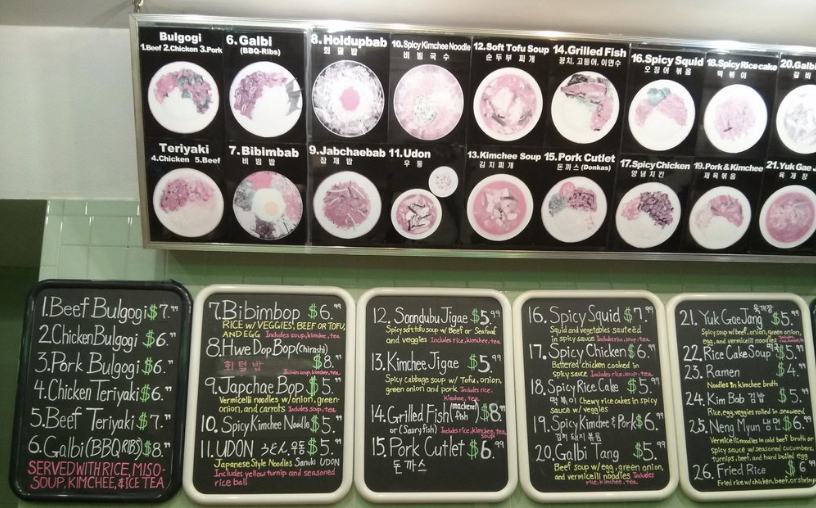 Bulgogi
1.Beef 2.Chicken 3.Pork
6.Galbi
(BBQ-Ribs)
8.Holdupbab
회 덮 밥
10.Spicy Kimchee Noodle
비 빔 국 수
12.Soft Tofu Soup
순 두 부 찌 개
14.Grilled Fish
꽁치, 고등어, 이면수
16.Spicy Squid
오 징 어 볶 음
18.Spicy Rice cake
떡 볶 이
20.Galbi
갈 비
Teriyaki
4.Chicken 5.Beef
7.Bibimbab
비 빔 밥
9.Jabchaebab
잡 채 밥
11.Udon
우 동
13.Kimchee Soup
김 치 찌 개
15.Pork Cutlet
돈 까 스 (Donkas)
17.Spicy Chicken
양 념 치 킨
19.Pork & Kimchee
제 육 볶 음
21.Yuk Gae J
육 개 장
1.Beef Bulgogi $7.99
2.Chicken Bulgogi $6.99
3.Pork Bulgogi $6.99
4.Chicken Teriyaki $6.99
5.Beef Teriyaki $7.99
6.Galbi (BBQ RIBS) $8.99
SERVED WITH RICE, MISO-
SOUP, KIMCHEE, & ICE TEA
7.Bibimbop $6.99
RICE w/ VEGGIES, BEEF OR TOFU,
AND EGG Includes soup, kimchee, tea
8.Hwe Dop Bop (Chirashi)
회 덮 밥 $8.99
Includes soup, kimchee, tea
9.Japchae Bop $5.99
Vermicelli noodles w/ onion, green-
onion, and carrots Includes soup, tea
10.Spicy Kimchee Noodle $5.99
11.UDON うどん, 우동 $5.99
Japanese Style Noodles Sanuki UDON
Includes yellow turnip and seasoned
rice ball
12. Soondubu Jigae $5.99
Spicy soft tofu soup w/ Beef or Seafood
and veggies Includes rice, kimchee, tea
13.Kimchee Jigae $5.99
Spicy cabbage soup w/ Tofu, onion,
green onion and pork Includes rice,
kimchee, tea
14.Grilled Fish (mackerel) $8.99
or (Saury fish) Includes rice, kimchee, tea
soup
15.Pork Cutlet $6.99
돈 까 스
16. Spicy Squid $7.99
Squid and vegetables sauteed
in spicy sauce Includes rice, soup, tea
17. Spicy Chicken $6.99
Battered chicken cooked in
spicy sauce Includes rice, soup, tea
18. Spicy Rice Cake $5.99
떡 볶 이 Chewy rice cakes in spicy
sauce w/ veggies
19. Spicy Kimchee & Pork $6.99
김치 돼지 볶음
20. Galbi Tang $5.99
Beef soup w/ egg, green onion,
and vermicelli noodles Includes
rice, kimchee, tea
육개장
21. Yuk Gae Jang $5.99
Spicy soup w/ beef, onion, green onion,
egg, and vermicelli noodles
22. Rice Cake Soup $5.99
23. Ramen $4.99
Noodles in kimchee broth
24. Kim Bob 김밥 $5.99
Rice, egg, veggies rolled in seaweed
25. Neng Myun 냉면 $6.99
Vermicelli noodles in cold beef broth or
spicy sauce w/ seasoned cucumbers,
turnips, beef, and hard boiled egg
26. Fried Rice $6.99
Fried rice w/ chicken, beef, or shrimp